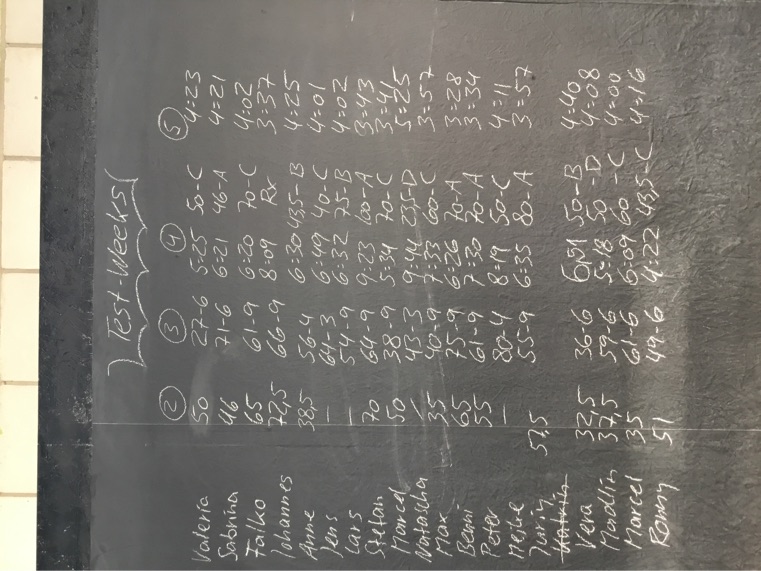 Test-Weeks
② ③ ④ ⑤
Valeria 50 27-6 5:25 50-C 4:23
Sabrina 46 71-6 6:21 46-A 4:21
Falko 65 61-9 6:20 70-C 4:02
Johannes 72,5 66-9 8:09 Rx 3:37
Anne 38,5 56-4 6:30 43,5-B 4:25
Jens – 64-3 6:49 40-C 4:01
Lars – 54-9 6:32 75-B 4:02
Stefan 70 64-9 9:23 100-A 3:43
Marcel 50 38-9 5:34 70-C 3:41
Natascha / 43-3 9:44 23,5-D 5:25
Max 35 40-9 7:33 3:57
Benni 65 75-9 6:26 70-A 3:28
Peter 55 61-9 7:30 70-A 3:34
Meike – 80-4 8:19 50-C 4:11
57,5 55-9 6:35 80-A 3:57
Vera 32,5 36-6 6:51 50-B 4:40
Madlin 37,5 59-6 5:18 50-D 4:08
Marcel 35 61-6 6:09 60-C 4:00
Ronny 51 49-6 4:22 43,5-C 4:16